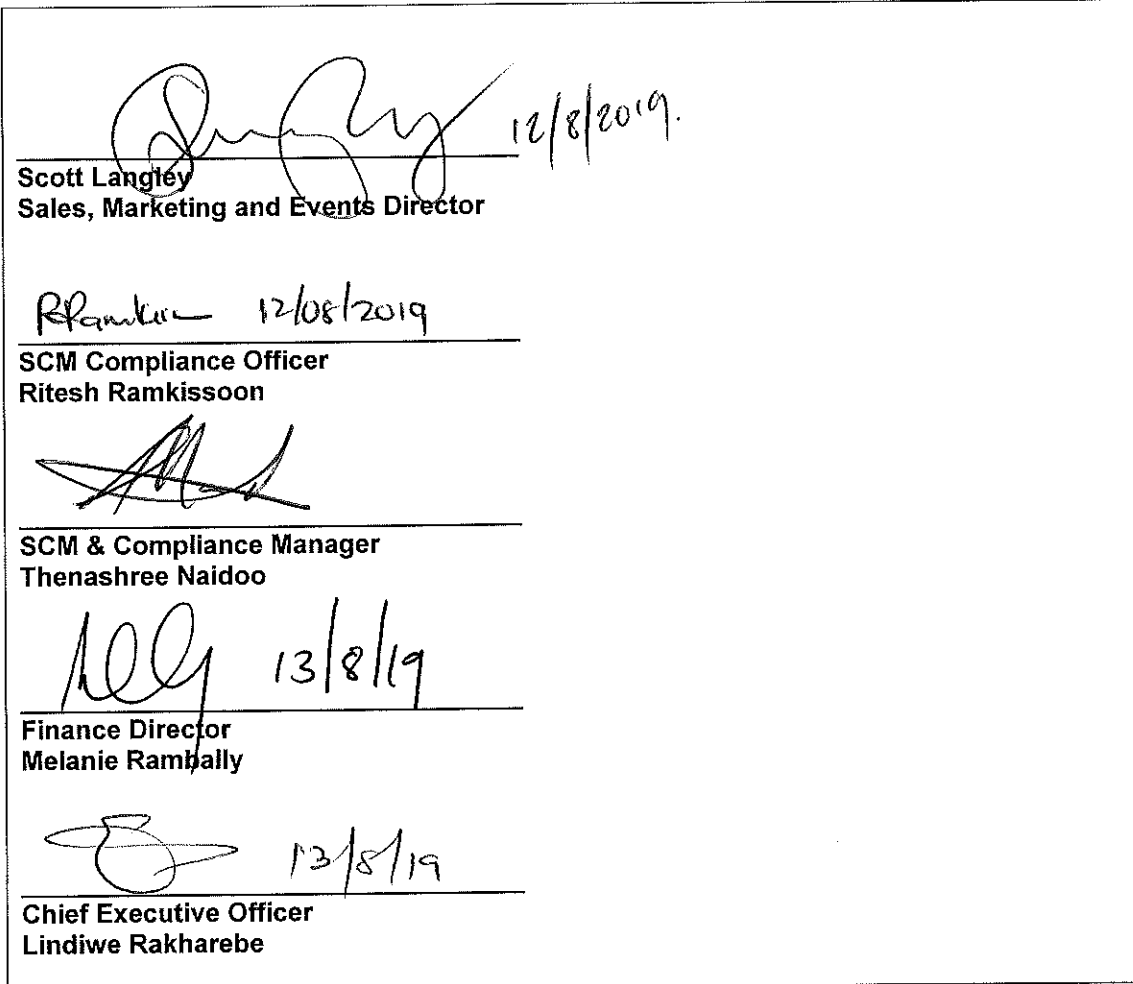 12/8/2019.
Scott Langley
Sales, Marketing and Events Director
12/08/2019
SCM Compliance Officer
Ritesh Ramkissoon
SCM & Compliance Manager
Thenashree Naidoo
13/8/19
Finance Director
Melanie Rambally
13/8/19
Chief Executive Officer
Lindiwe Rakharebe